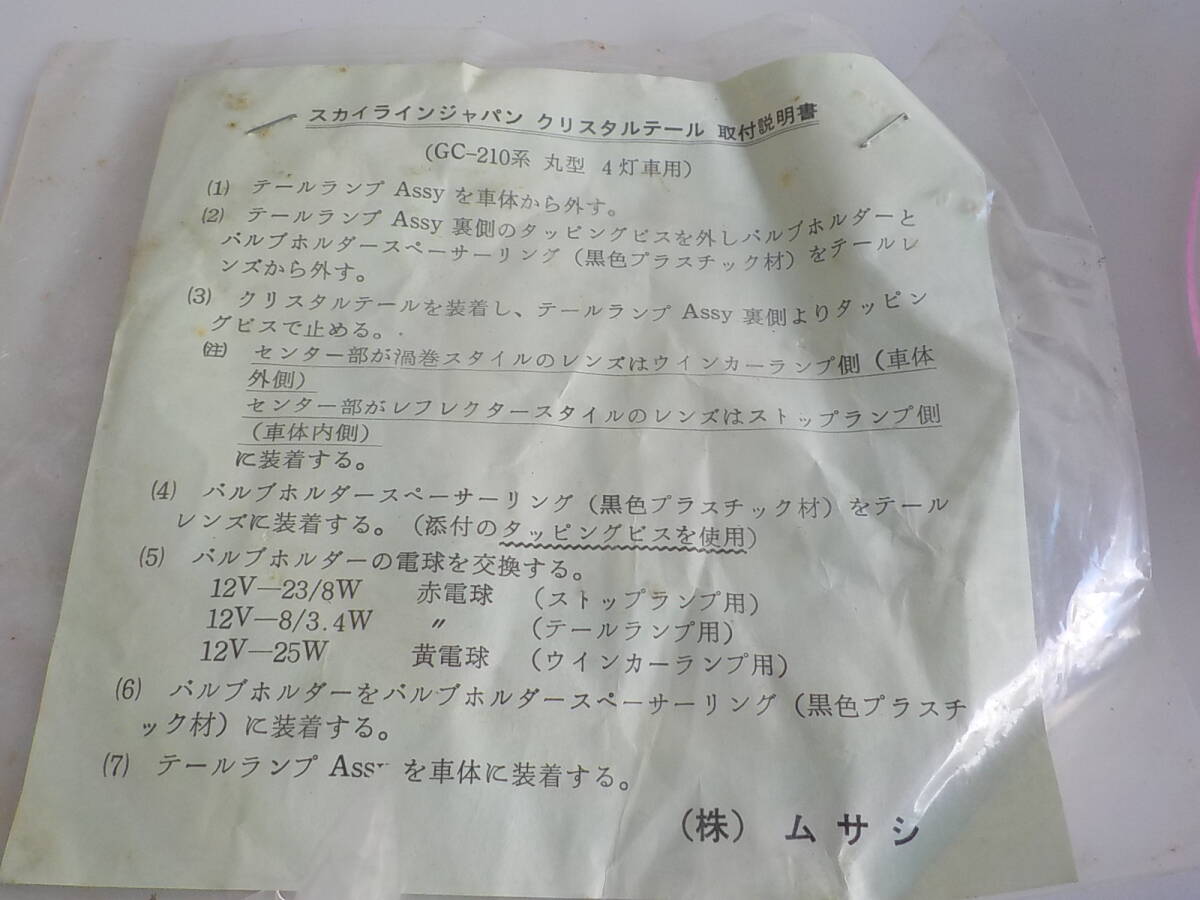 スカイラインジャパン クリスタルテール 取付説明書
(GC-210系 丸型 4灯車用)
(1) テールランプ Assy を車体から外す。
(2) テールランプ Assy 裏側のタッピングビスを外しバルブホルダーと
バルブホルダースペーサーリング(黒色プラスチック材)をテールレ
ンズから外す。
(3) クリスタルテールを装着し、テールランプ Assy 裏側よりタッピン
グビスで止める。
(注) センター部が渦巻スタイルのレンズはウインカーランプ側(車体
外側)
センター部がレフレクタースタイルのレンズはストップランプ側
(車体内側)
に装着する。
(4) バルブホルダースペーサーリング(黒色プラスチック材)をテール
レンズに装着する。(添付のタッピングビスを使用)
(5) バルブホルダーの電球を交換する。
12V―23/8W 赤電球 (ストップランプ用)
12V―8/3.4W 〃 (テールランプ用)
12V―25W 黄電球 (ウインカーランプ用)
(6) バルブホルダーをバルブホルダースペーサーリング(黒色プラスチ
ック材)に装着する。
(7) テールランプ Assy を車体に装着する。
(株) ムサシ